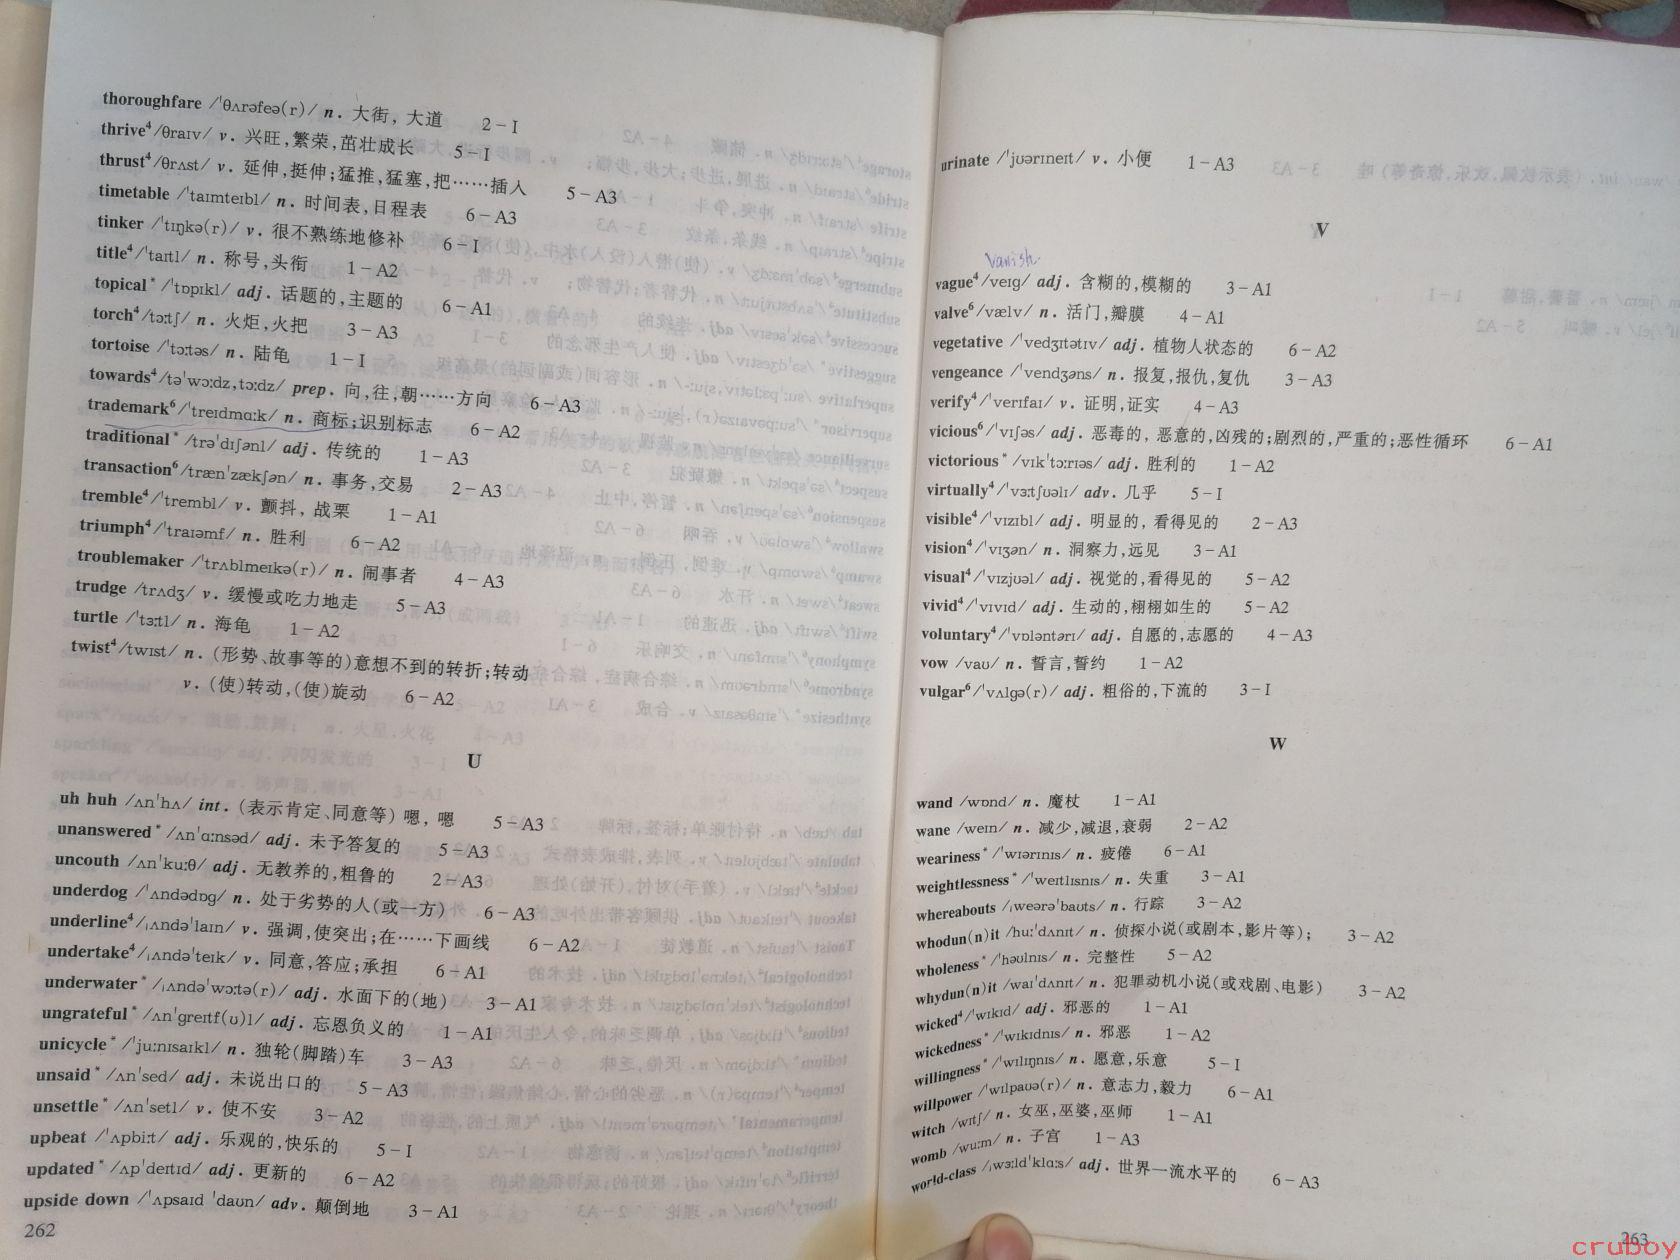 thoroughfare /ˈθʌrəfeə(r)/ n. 大街, 大道 2-I
thrive⁴/θraɪv/ v. 兴旺,繁荣,茁壮成长 5-I
thrust⁴/θrʌst/ v. 延伸,挺伸;猛推,猛塞,把……插入 5-A3
timetable /ˈtaɪmteɪbl/ n. 时间表,日程表 6-A3
tinker /ˈtɪŋkə(r)/ v. 很不熟练地修补 6-I
title⁴/ˈtaɪtl/ n. 称号,头衔 1-A2
topical* /ˈtɒpɪkl/ adj. 话题的,主题的 6-A1
torch⁴/tɔːtʃ/ n. 火炬,火把 3-A3
tortoise /ˈtɔːtəs/ n. 陆龟 1-I
towards⁴/təˈwɔːdz,tɔːdz/ prep. 向,往,朝……方向 6-A3
trademark⁶/ˈtreɪdmɑːk/ n. 商标;识别标志 6-A2
traditional* /trəˈdɪʃənl/ adj. 传统的 1-A3
transaction⁶/trænˈzækʃən/ n. 事务,交易 2-A3
tremble⁴/ˈtrembl/ v. 颤抖, 战栗 1-A1
triumph⁴/ˈtraɪəmf/ n. 胜利 6-A2
troublemaker /ˈtrʌblmeɪkə(r)/ n. 闹事者 4-A3
trudge /trʌdʒ/ v. 缓慢或吃力地走 5-A3
turtle /ˈtɜːtl/ n. 海龟 1-A2
twist⁴/twɪst/ n. (形势、故事等的)意想不到的转折;转动
v. (使)转动,(使)旋动 6-A2
U
uh huh /ʌnˈhʌ/ int. (表示肯定、同意等) 嗯, 嗯 5-A3
unanswered* /ʌnˈɑːnsəd/ adj. 未予答复的 5-A3
uncouth /ʌnˈkuːθ/ adj. 无教养的,粗鲁的 2-A3
underdog /ˈʌndədɒg/ n. 处于劣势的人(或一方) 6-A3
underline⁴/ˌʌndəˈlaɪn/ v. 强调,使突出;在……下画线 6-A2
undertake⁴/ˌʌndəˈteɪk/ v. 同意,答应;承担 6-A1
underwater* /ˌʌndəˈwɔːtə(r)/ adj. 水面下的(地) 3-A1
ungrateful* /ʌnˈgreɪtf(ʊ)l/ adj. 忘恩负义的 1-A1
unicycle* /ˈjuːnɪsaɪkl/ n. 独轮(脚踏)车 3-A3
unsaid* /ʌnˈsed/ adj. 未说出口的 5-A3
unsettle* /ʌnˈsetl/ v. 使不安 3-A2
upbeat /ˈʌpbiːt/ adj. 乐观的,快乐的 5-I
updated* /ʌpˈdeɪtɪd/ adj. 更新的 6-A2
upside down /ˈʌpsaɪd ˈdaʊn/ adv. 颠倒地 3-A1
262
urinate /ˈjʊərɪneɪt/ v. 小便 1-A3
V
vanish
vague⁴/veɪg/ adj. 含糊的,模糊的 3-A1
valve⁶/vælv/ n. 活门,瓣膜 4-A1
vegetative /ˈvedʒɪtətɪv/ adj. 植物人状态的 6-A2
vengeance /ˈvendʒəns/ n. 报复,报仇,复仇 3-A3
verify⁴/ˈverɪfaɪ/ v. 证明,证实 4-A3
vicious⁶/ˈvɪʃəs/ adj. 恶毒的, 恶意的,凶残的;剧烈的,严重的;恶性循环 6-A1
victorious* /vɪkˈtɔːrɪəs/ adj. 胜利的 1-A2
virtually⁴/ˈvɜːtʃʊəlɪ/ adv. 几乎 5-I
visible⁴/ˈvɪzɪbl/ adj. 明显的, 看得见的 2-A3
vision⁴/ˈvɪʒən/ n. 洞察力,远见 3-A1
visual⁴/ˈvɪzjʊəl/ adj. 视觉的,看得见的 5-A2
vivid⁴/ˈvɪvɪd/ adj. 生动的,栩栩如生的 5-A2
voluntary⁴/ˈvɒləntərɪ/ adj. 自愿的,志愿的 4-A3
vow /vaʊ/ n. 誓言,誓约 1-A2
vulgar⁶/ˈvʌlgə(r)/ adj. 粗俗的,下流的 3-I
W
wand /wɒnd/ n. 魔杖 1-A1
wane /weɪn/ n. 减少,减退,衰弱 2-A2
weariness* /ˈwɪərɪnɪs/ n. 疲倦 6-A1
weightlessness* /ˈweɪtlɪsnɪs/ n. 失重 3-A1
whereabouts /ˌweərəˈbaʊts/ n. 行踪 3-A2
whodun(n)it /huːˈdʌnɪt/ n. 侦探小说(或剧本,影片等); 3-A2
wholeness* /ˈhəʊlnɪs/ n. 完整性 5-A2
whydun(n)it /waɪˈdʌnɪt/ n. 犯罪动机小说(或戏剧、电影) 3-A2
wicked⁴/ˈwɪkɪd/ adj. 邪恶的 1-A1
wickedness* /ˈwɪkɪdnɪs/ n. 邪恶 1-A2
willingness* /ˈwɪlɪŋnɪs/ n. 愿意,乐意 5-I
willpower /ˈwɪlpaʊə(r)/ n. 意志力,毅力 6-A1
witch /wɪtʃ/ n. 女巫,巫婆,巫师 1-A1
womb /wuːm/ n. 子宫 1-A3
world-class /ˌwɜːldˈklɑːs/ adj. 世界一流水平的 6-A3
263
cruboy